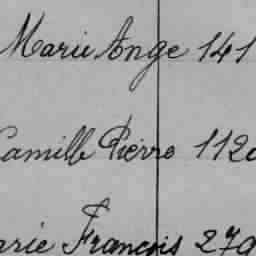 Marie Ange 141
Camille Pierre 112
arie François 27